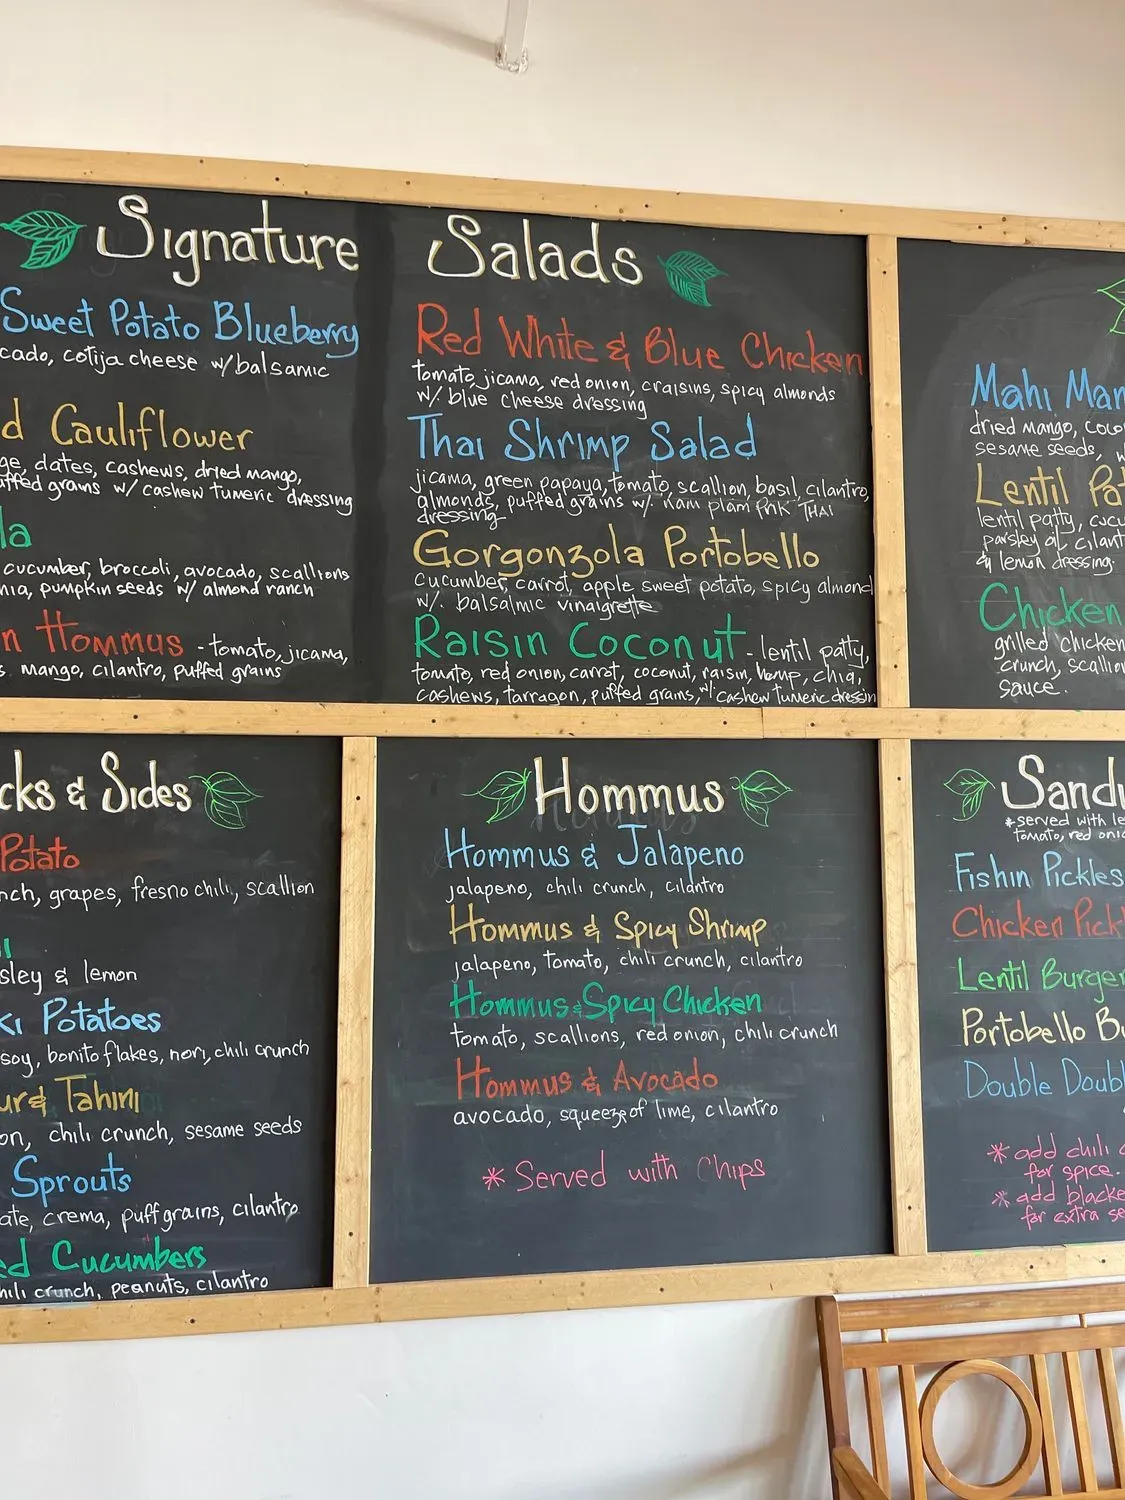 Signature Salads
Sweet Potato Blueberry
cado, cotija cheese w/balsamic
d Cauliflower
ge, dates, cashews, dried mango,
uffed grains w/ cashew tumeric dressing
la
cucumber, broccoli, avocado, scallions
nia, pumpkin seeds w/ almond ranch
n Hommus - tomato, jicama,
s. mango, cilantro, puffed grains
Red White & Blue Chicken
tomato, jicama, red onion, craisins, spicy almonds
w/. blue cheese dressing
Thai Shrimp Salad
jicama, green papaya, tomato, scallion, basil, cilantro,
almonds, puffed grains w/. nam plam Prik THAI
dressing
Gorgonzola Portobello
cucumber, carrot, apple sweet potato, spicy almond
w/. balsalmic vinaigrette
Raisin Coconut - lentil patty,
tomato, red onion, carrot, coconut, raisin, hemp, chia,
cashews, tarragon, puffed grains, w/ cashew tumeric dressin
Mahi Man
dried mango, coco
sesame seeds, w
Lentil Pat
lentil patty, cucu
parsley oil, cilant
& lemon dressing.
Chicken
grilled chicken
crunch, scallion
sauce.
cks & Sides
Potato
nch, grapes, fresno chili, scallion
sley & lemon
ki Potatoes
soy, bonito flakes, nori, chili crunch
ur & Tahini
on, chili crunch, sesame seeds
Sprouts
ate, crema, puff grains, cilantro
ed Cucumbers
hili crunch, peanuts, cilantro
Hommus
Hommus & Jalapeno
jalapeno, chili crunch, cilantro
Hommus & Spicy Shrimp
jalapeno, tomato, chili crunch, cilantro
Hommus & Spicy Chicken
tomato, scallions, red onion, chili crunch
Hommus & Avocado
avocado, squeeze of lime, cilantro
* Served with Chips
Sandw
*served with le
tomato, red onio
Fishin Pickles
Chicken Pickl
Lentil Burger
Portobello Bu
Double Doubl
* add chili c
for spice.
* add blacke
for extra se